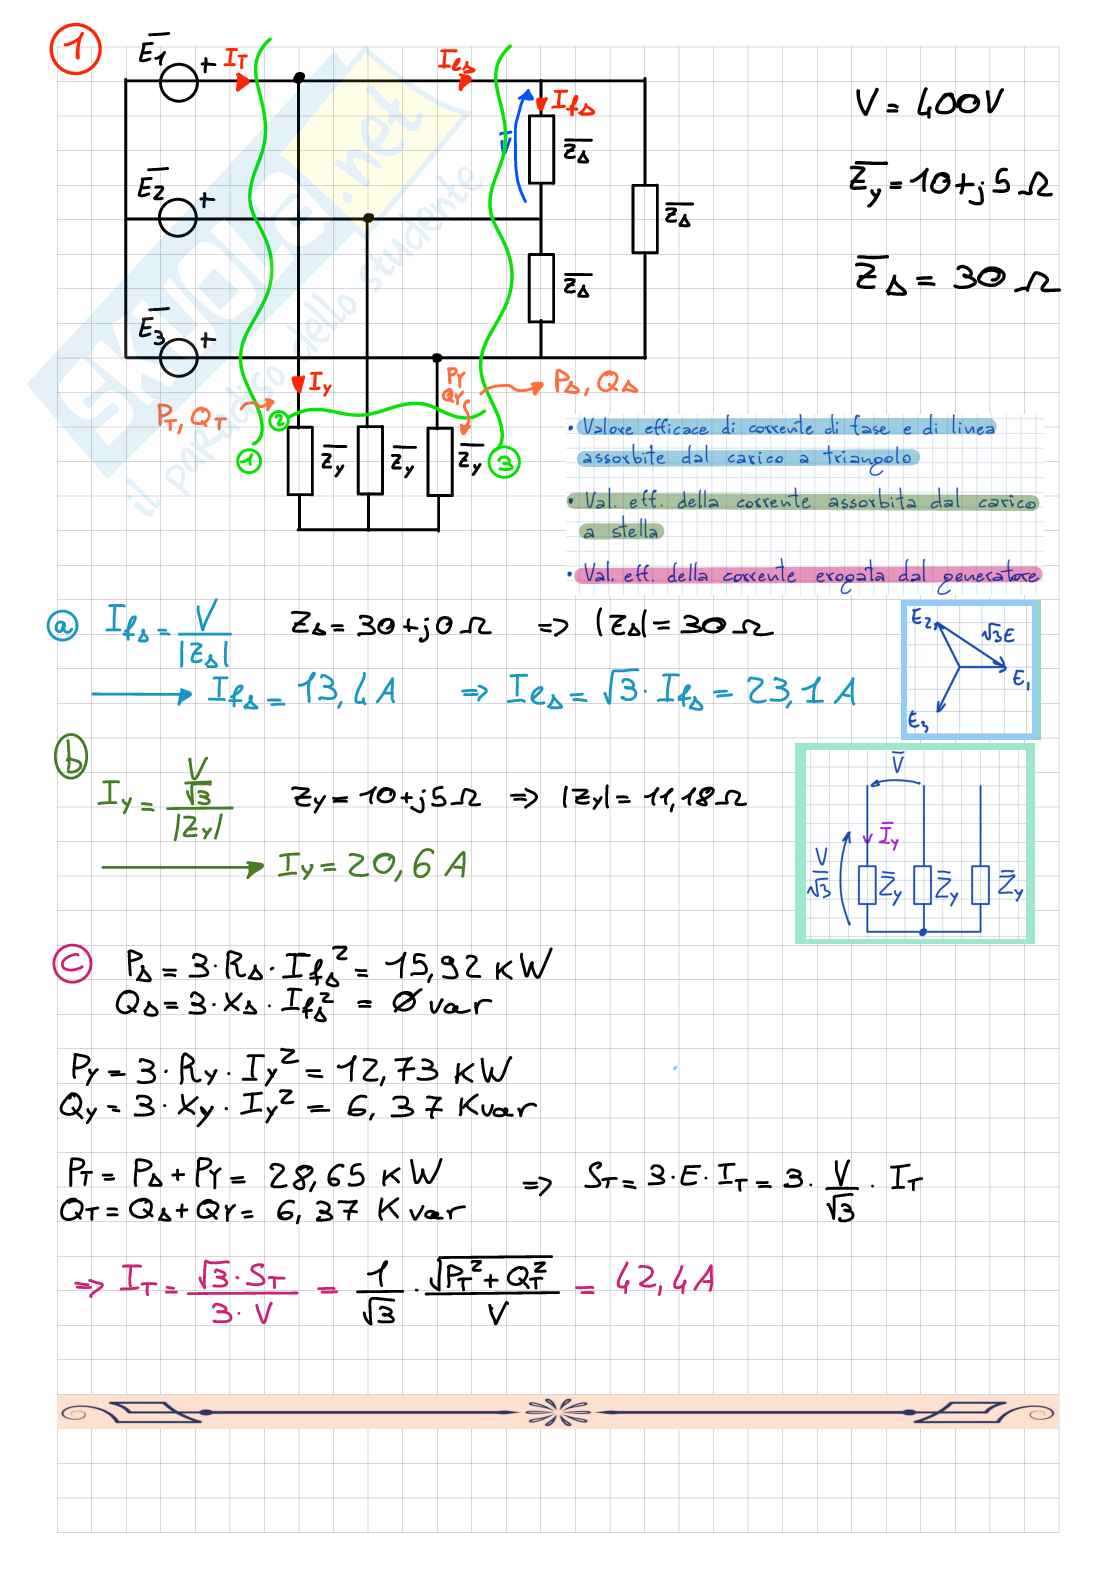 1
E̅1 + I_T I_ℓΔ
I_fΔ
V = 400V
V̅ Z̅Δ
Z̅y = 10+j5 Ω
E̅2 +
Z̅Δ
Z̅Δ = 30 Ω
Z̅Δ
E̅3 +
Iy Py Qy PΔ, QΔ
PT, QT
2
1 Z̅y Z̅y Z̅y 3
• Valore efficace di corrente di fase e di linea
assorbite dal carico a triangolo
• Val. eff. della corrente assorbita dal carico
a stella
• Val. eff. della corrente erogata dal generatore
SKUOLA.net
il paradiso dello studente
a I_fΔ = V/|ZΔ| ZΔ = 30+j0 Ω => |ZΔ| = 30 Ω
E2 √3E
E1
E3
→ I_fΔ = 13,4 A => I_ℓΔ = √3 · I_fΔ = 23,1 A
b Iy = (V/√3)/|Zy| Zy = 10+j5 Ω => |Zy| = 11,18 Ω
→ Iy = 20,6 A
V̅
I̅y
V/√3 Z̅y Z̅y Z̅y
c PΔ = 3·RΔ·I_fΔ² = 15,92 KW
QΔ = 3·XΔ·I_fΔ² = 0 var
Py = 3·Ry·Iy² = 12,73 KW
Qy = 3·Xy·Iy² = 6,37 Kvar
PT = PΔ + PY = 28,65 KW => ST = 3·E·IT = 3·V/√3·IT
QT = QΔ + QY = 6,37 Kvar
=> IT = √3·ST / 3·V = 1/√3 · √(PT²+QT²)/V = 42,4A